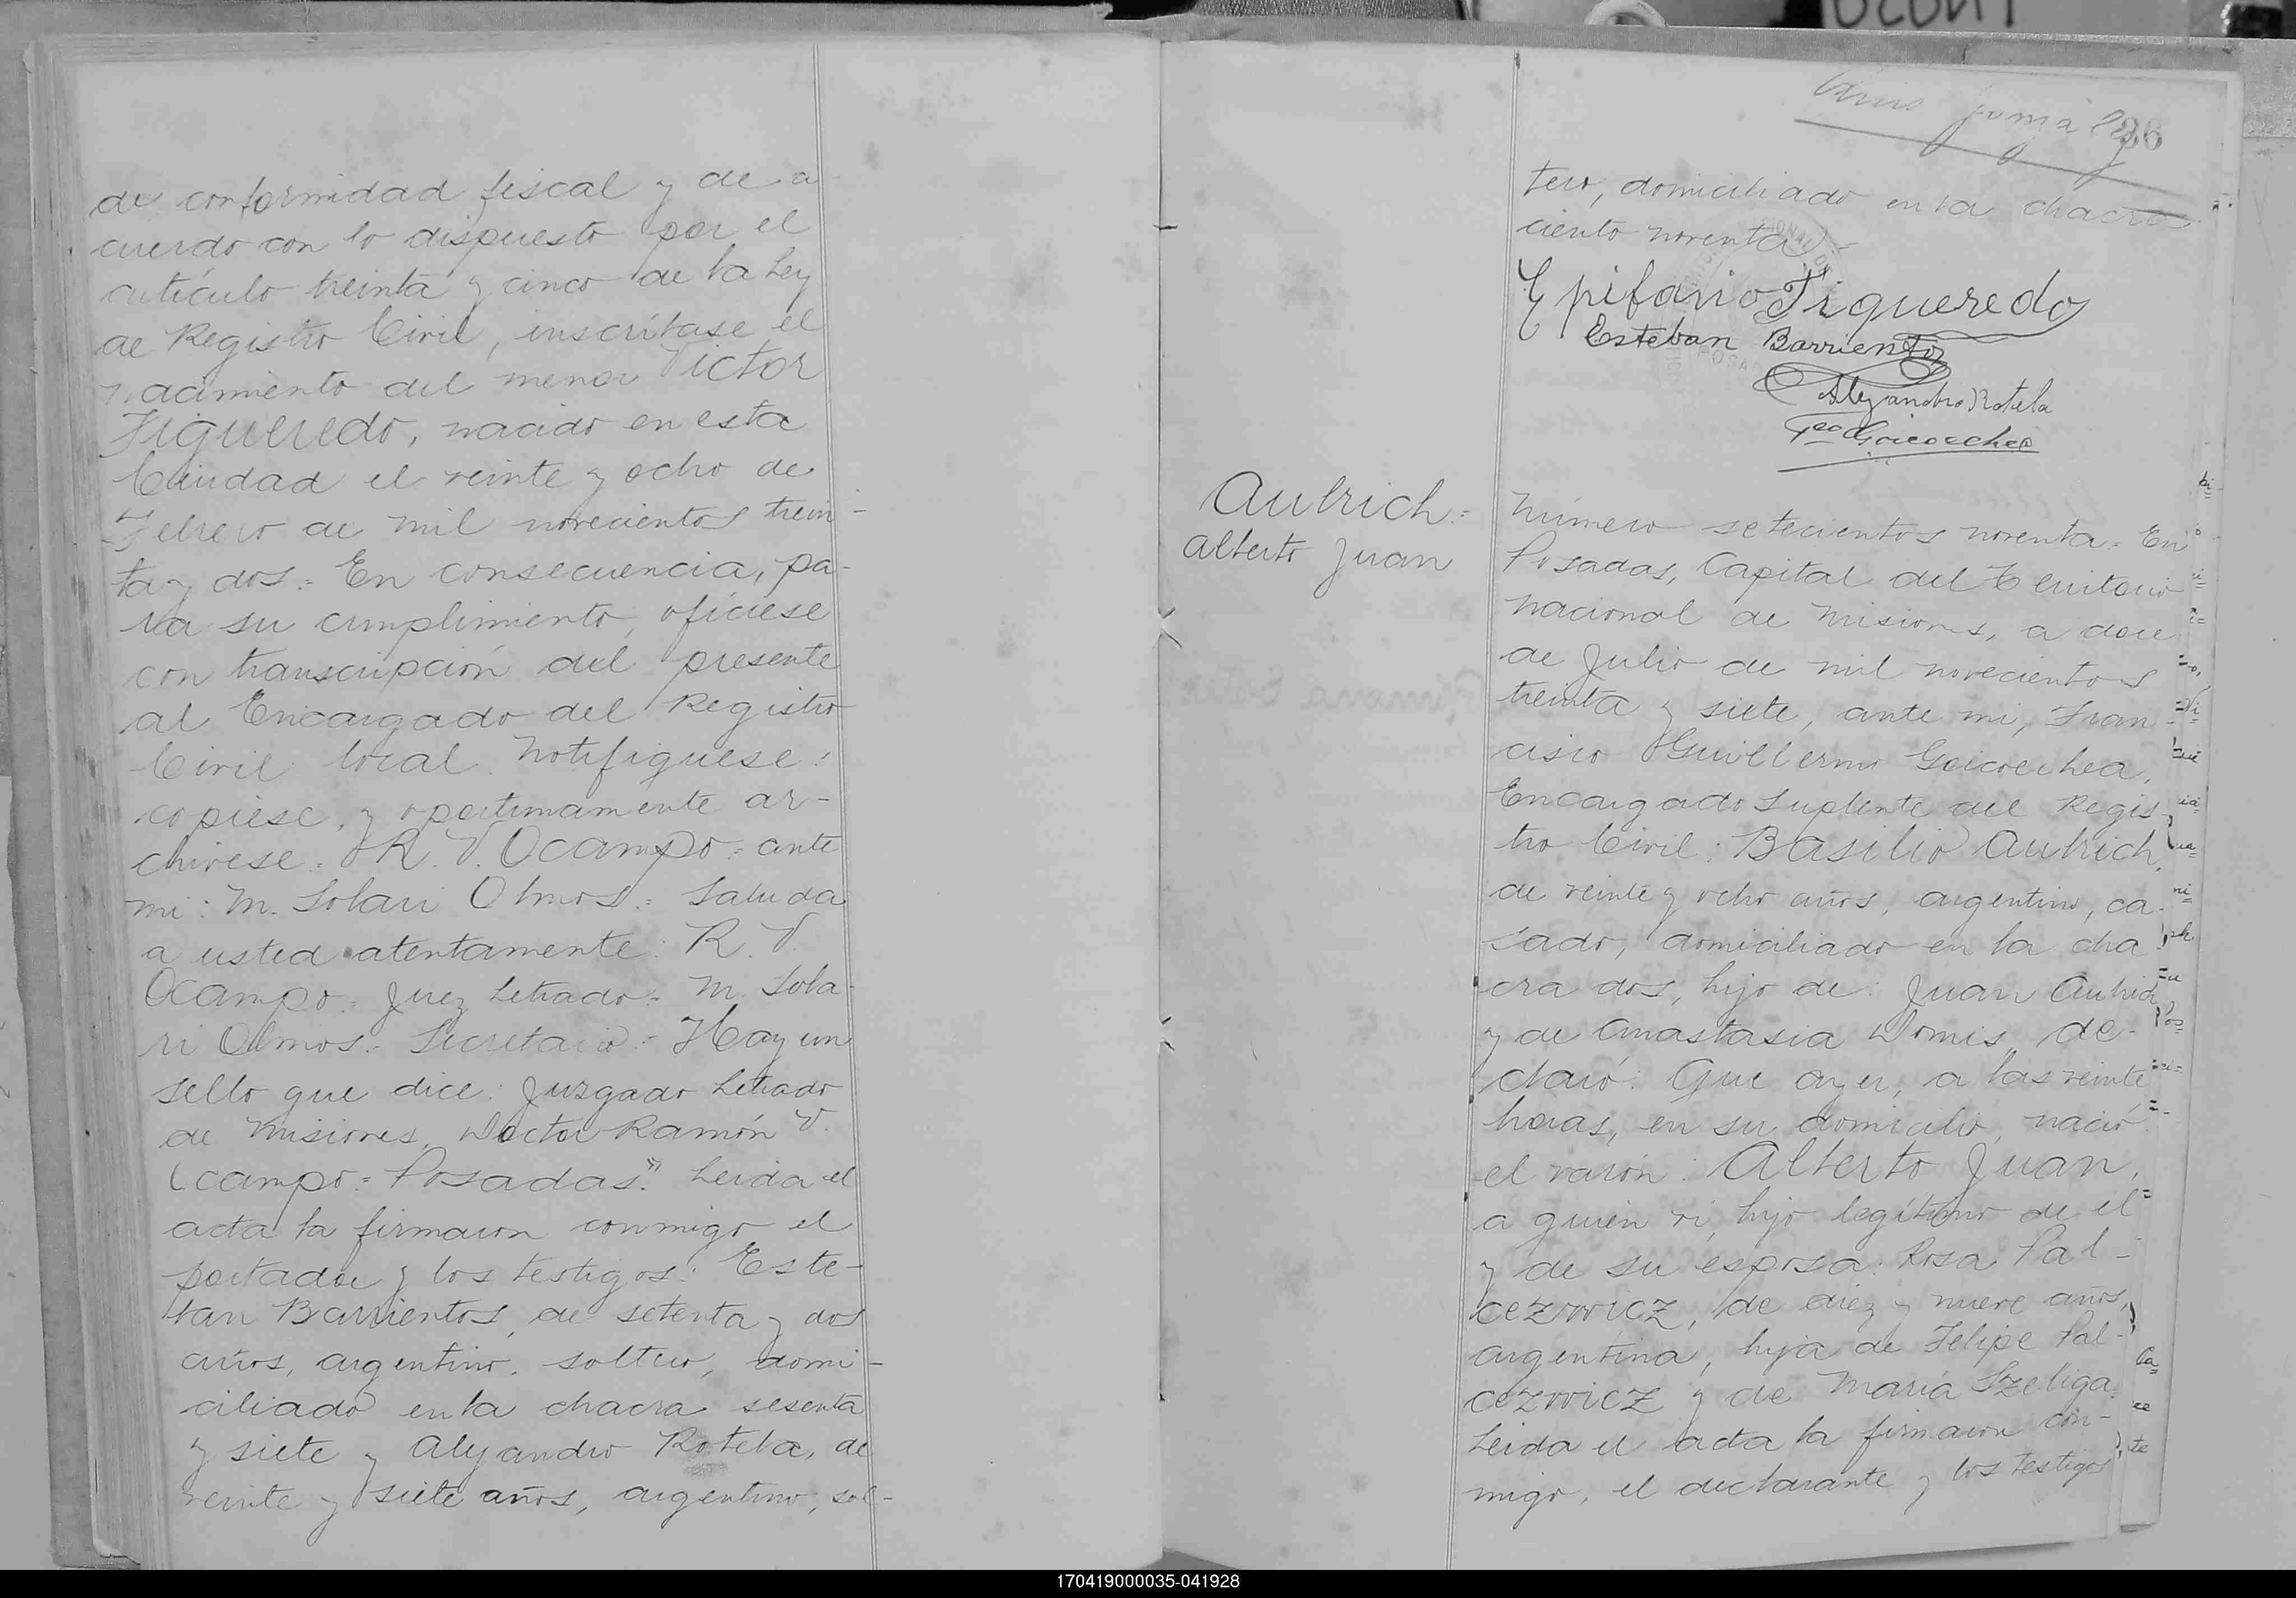 de conformidad fiscal y de a-
cuerdo con lo dispuesto por el
artículo treinta y cinco de la Ley
de Registro Civil, inscríbase el
nacimiento del menor Victor
Figueredo, nacido en esta
Ciudad el veinte y ocho de
Febrero de mil novecientos trein-
ta y dos = En consecuencia, pa-
ra su cumplimiento, ofíciese
con transcripción del presente
al Encargado del Registro
Civil local. Notifíquese:
copiese, y oportunamente ar-
chívese. = R. V. Ocampo = ante
mi: M. Solari Olmos = Saluda
a usted atentamente: R. V.
Ocampo = Juez Letrado = M. Sola-
ri Olmos = Secretario = Hay un
sello que dice: Juzgado Letrado
de Misiones, Doctor Ramón V.
Ocampo = Posadas." Leida el
acta la firmaron conmigo el
portador y los testigos: Este-
ban Barrientos, de setenta y dos
años, argentino, soltero, domi-
ciliado en la chacra sesenta
y siete y Alejandro Rotela, de
veinte y siete años, argentino, sol-
36
tero, domiciliado en la chacra
ciento noventa =
Epifanio Figueredo
Esteban Barrientos
Alejandro Rotela
Fco Goicoechea
Aubrich =
Alberto Juan
Número setecientos noventa = En
Posadas, Capital del Territorio
Nacional de Misiones, a doce
de Julio de mil novecientos
treinta y siete, ante mi, Fran-
cisco Guillermo Goicoechea,
Encargado Suplente del Regis-
tro Civil: Basilio Aubrich,
de veinte y ocho años, argentino, ca-
sado, domiciliado en la cha
cra dos, hijo de: Juan Aubrich
y de Anastasia Domis, de-
claró: Que ayer, a las veinte
horas, en su domicilio, nació
el varón: Alberto Juan,
a quien vi, hijo legítimo de el
y de su esposa: Rosa Pal-
cezwicz, de diez y nueve años,
argentina, hija de Felipe Pal-
cezwicz y de María Szeliga.
Leida el acta la firmaron con-
migo, el declarante y los testigos
170419000035-041928